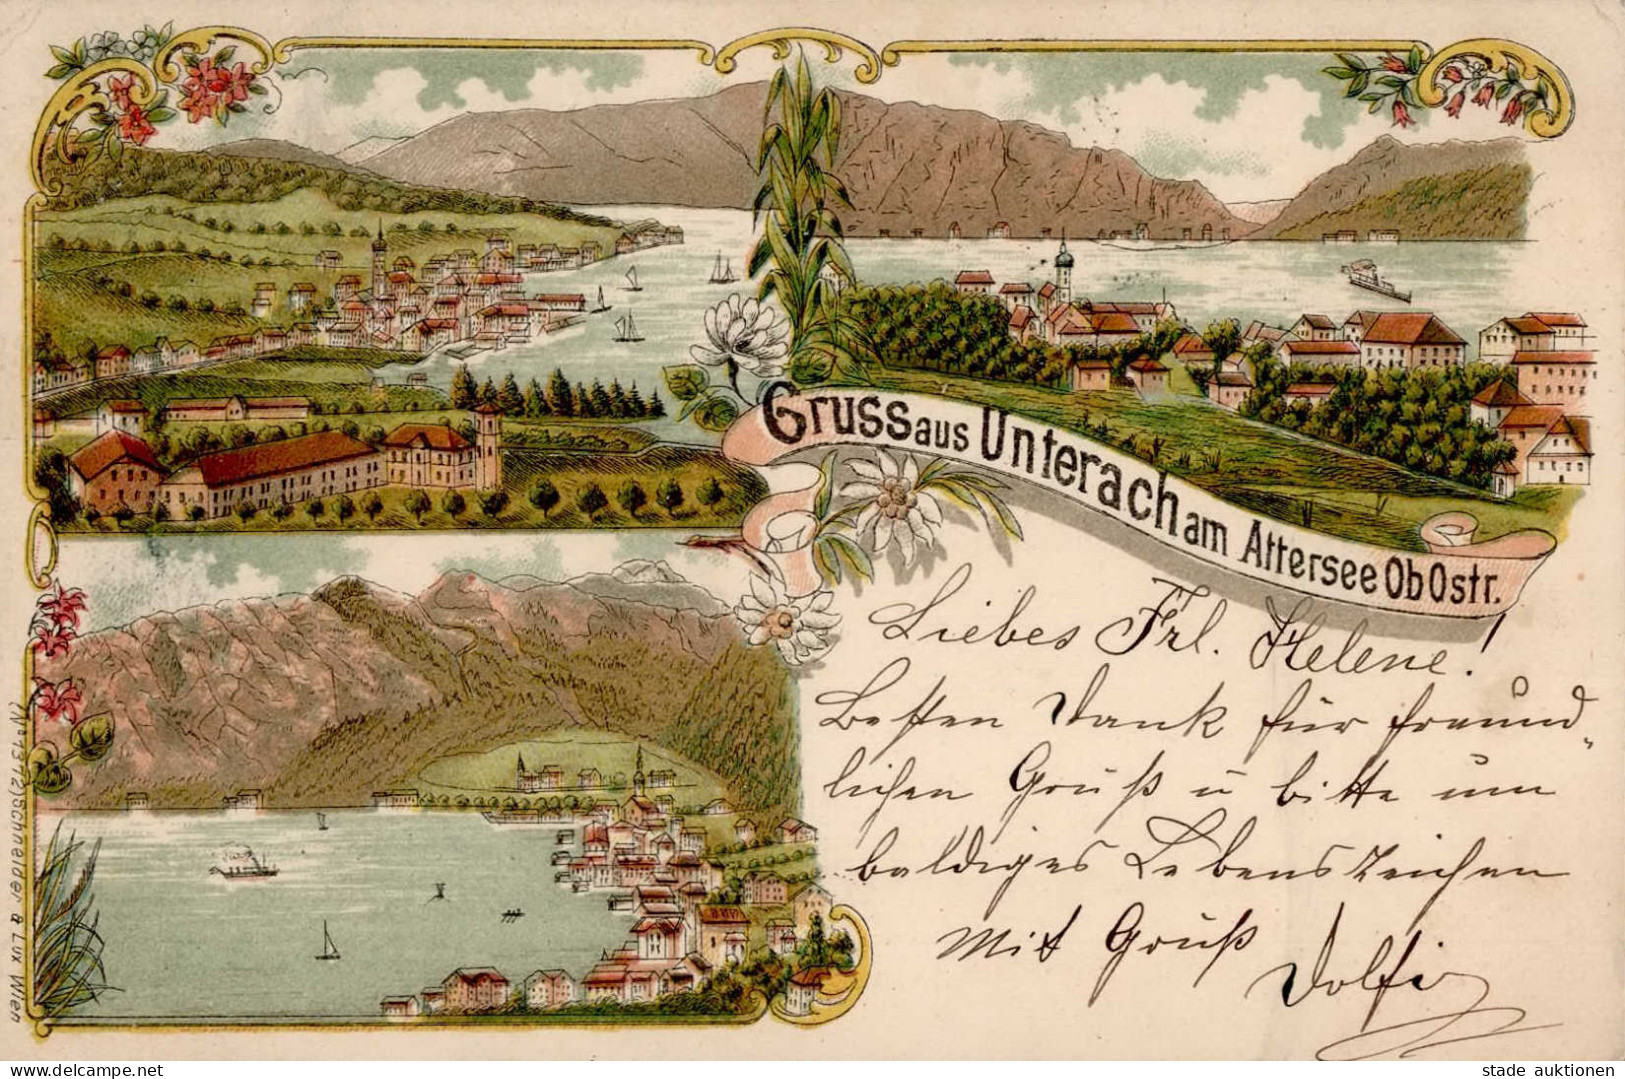 Gruss aus Unterach am Attersee ObÖstr.
Liebes Frl. Helene!
Besten Dank für freund-
lichen Gruß u bitte um
baldiges Lebenszeichen
Mit Gruß
Dolfi
(No 13712) Schneider & Lux Wien
www.delcampe.net
stade auktionen